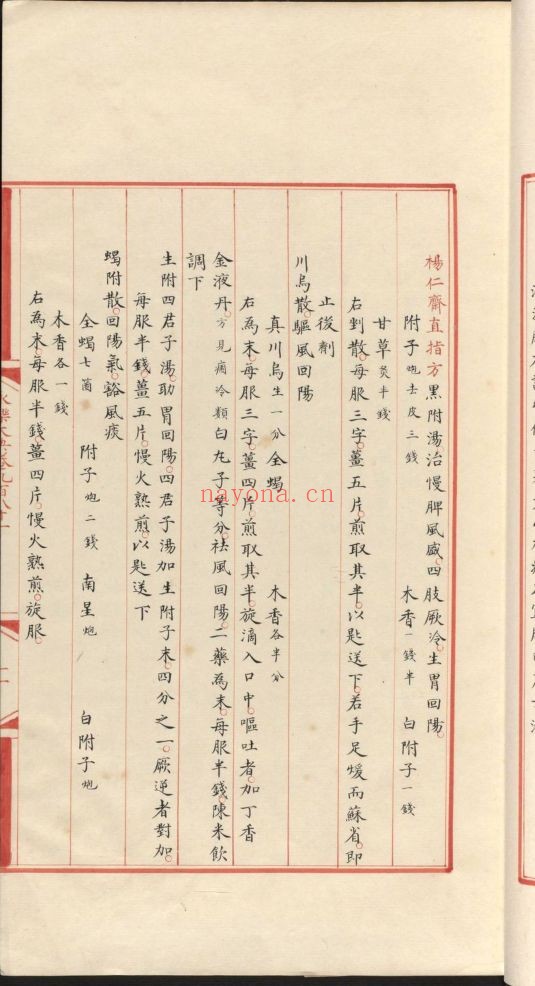 楊仁齋直指方黑附湯治慢脾風感四肢厥冷生胃回陽
附子炮去皮三錢 木香一錢半 白附子一錢
甘草炙半錢
右剉散每服三字薑五片煎取其半以匙送下若手足煖而蘇省即
止後劑
川烏散驅風回陽
真川烏生一分 全蝎 木香各半分
右為末每服三字薑四片煎取其半旋滴入口中嘔吐者加丁香
金液丹方見痼冷類白丸子等分祛風回陽二藥為末每服半錢陳米飲
調下
生附四君子湯助胃回陽四君子湯加生附子末四分之一厥逆者對加
每服半錢薑五片慢火熟煎以匙送下
蝎附散回陽氣豁風痰
全蝎七箇 附子炮二錢 南星炮 白附子炮
木香各一錢
右為末每服半錢薑四片慢火熟煎旋服
nayona.cn